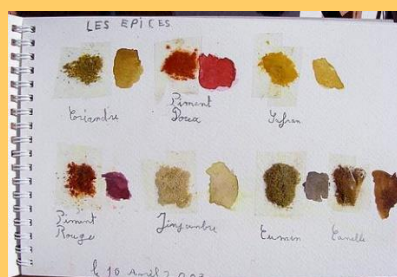 LES EPICES
Coriandre
Piment
Doux
Safran
Piment
Rouge
Jingembre
Cumin
Canelle
le 10 Avril 2003